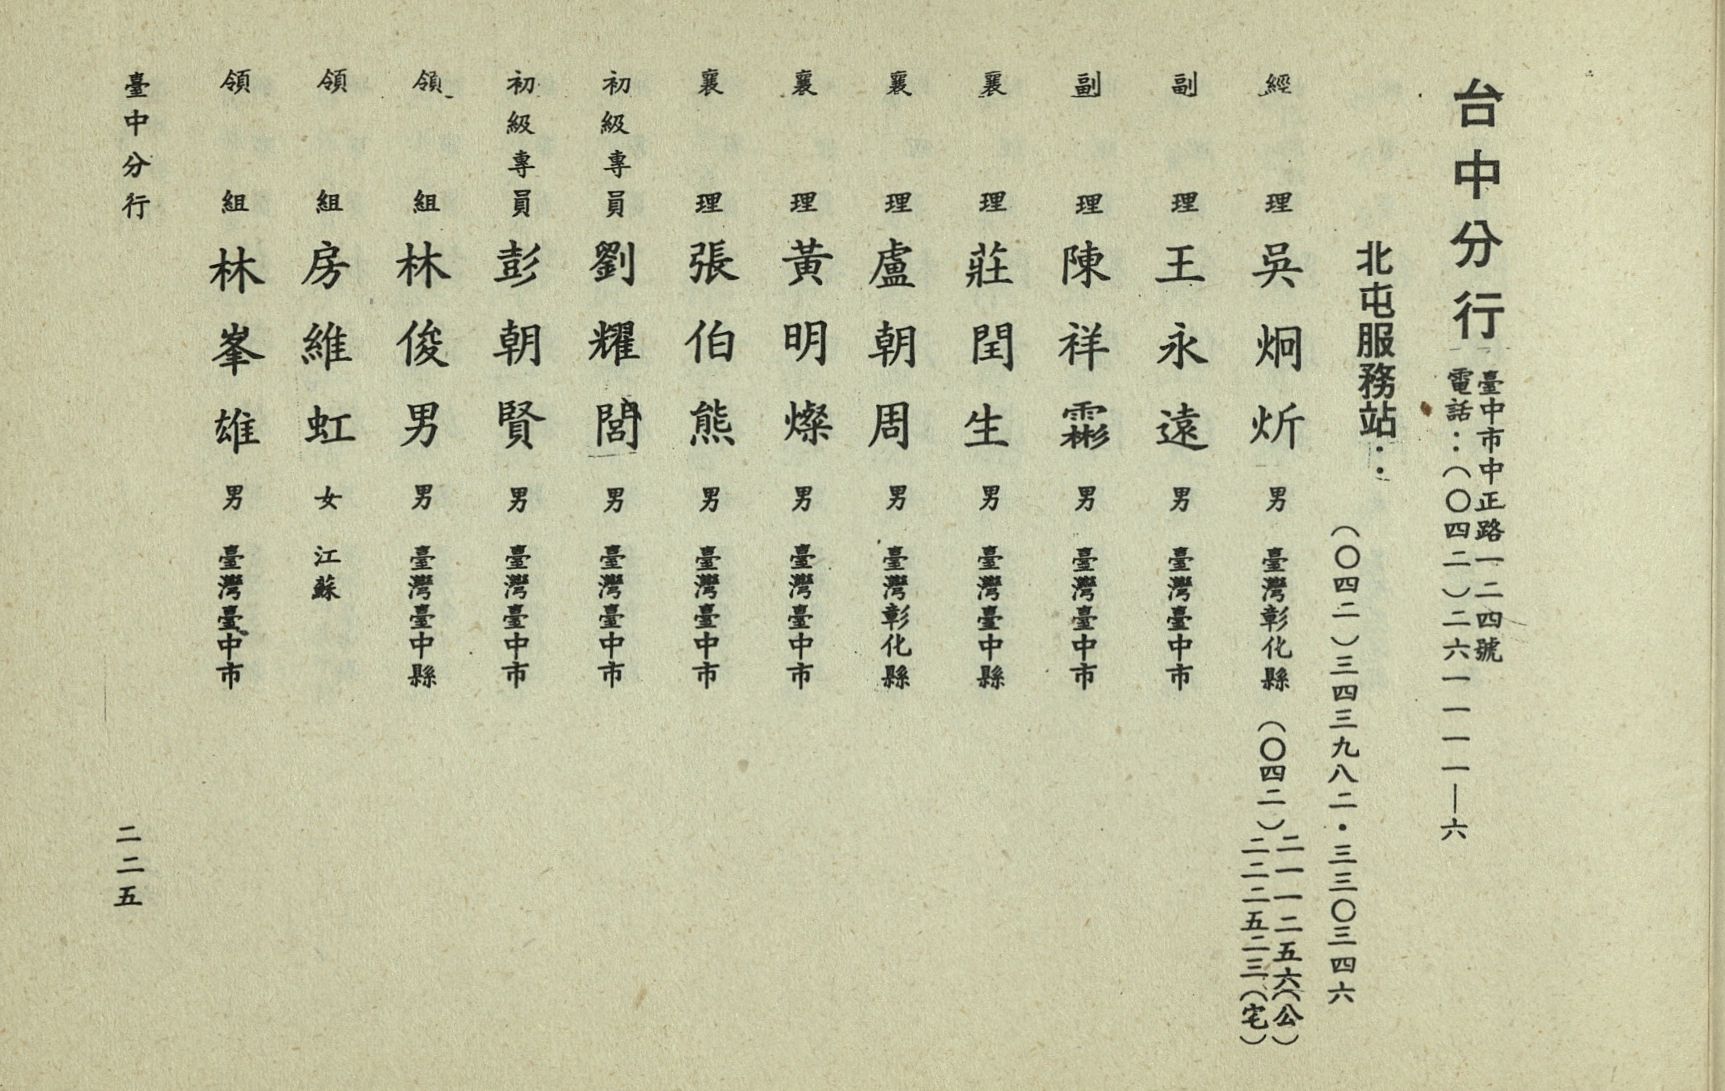 台中分行
臺中市中正路一二四號
電話：（〇四二）二六一一一一—六
北屯服務站：
（〇四二）三四三九八二・三三〇三四六
經理 吳炯炘 男 臺灣彰化縣 （〇四二）
二一一二五六（公）
二二二五二三（宅）
副理 王永遠 男 臺灣臺中市
副理 陳祥霦 男 臺灣臺中市
襄理 莊閏生 男 臺灣臺中縣
襄理 盧朝周 男 臺灣彰化縣
襄理 黃明燦 男 臺灣臺中市
襄理 張伯熊 男 臺灣臺中市
初級專員 劉耀閭 男 臺灣臺中市
初級專員 彭朝賢 男 臺灣臺中市
領組 林俊男 男 臺灣臺中縣
領組 房維虹 女 江蘇
領組 林峯雄 男 臺灣臺中市
臺中分行
二二五